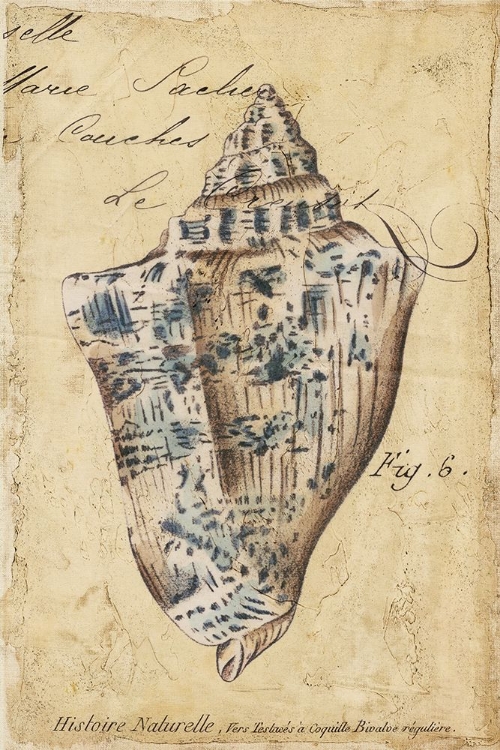 selle
Marie Pacher
Couches
Le Creusit
Fig. 6.
Histoire Naturelle, Vers Testacés à Coquille Bivalve régulière.